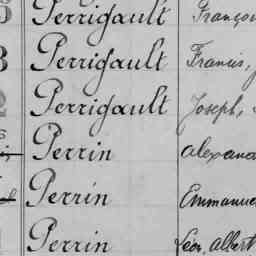 Perrigault Franço
3 Perrigault Francis,
2 Perrigault Joseph,
Perrin Alexand
Perrin Emmanue
Perrin Léon, Albert